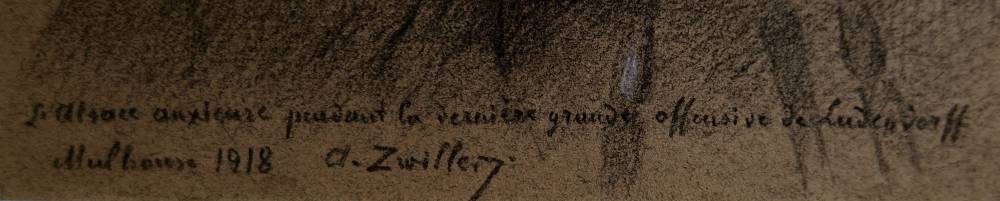 L'Alsace anxieuse pendant la dernière grande offensive de Ludendorff
Mulhouse 1918 A. Zwiller